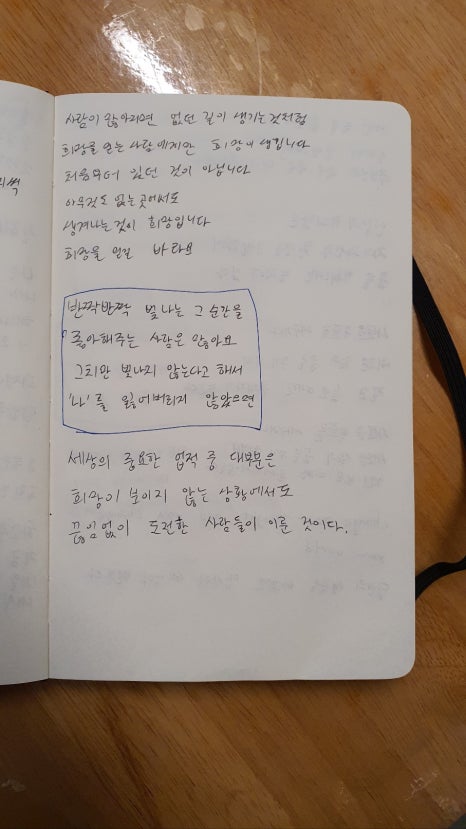 리씩
사람이 많아지면 없던 길이 생기는것처럼
희망을 믿는 사람에게만 희망이 생깁니다
처음부터 있던 것이 아닙니다
아무것도 없는 곳에서도
생겨나는 것이 희망입니다
희망을 믿길 바라요
반짝반짝 빛나는 그 순간을
좋아해주는 사람은 많아요
그치만 빛나지 않는다고 해서
'나'를 잃어버리지 않았으면
세상의 중요한 업적 중 대부분은
희망이 보이지 않는 상황에서도
끊임없이 도전한 사람들이 이룬 것이다.